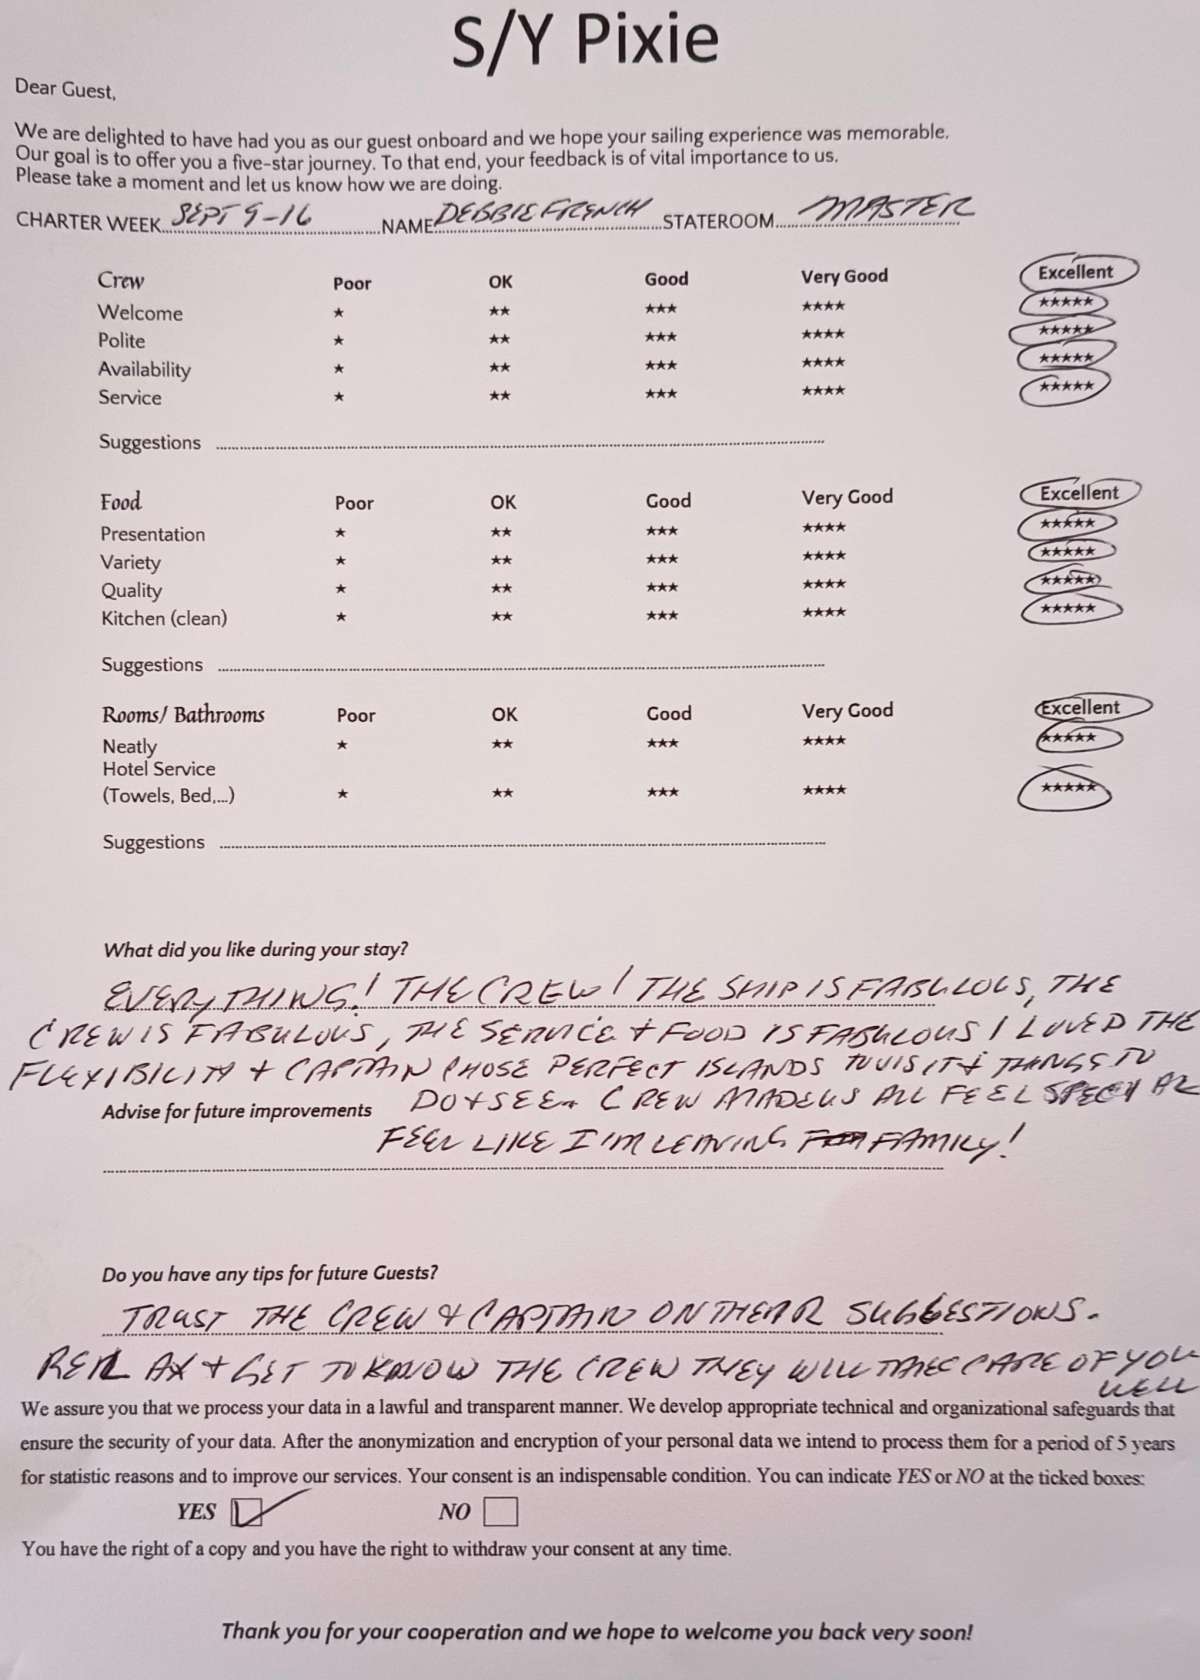 S/Y Pixie
Dear Guest,
We are delighted to have had you as our guest onboard and we hope your sailing experience was memorable.
Our goal is to offer you a five-star journey. To that end, your feedback is of vital importance to us.
Please take a moment and let us know how we are doing.
CHARTER WEEK SEPT 9-16 NAME DEBBIE FRENCH STATEROOM MASTER
Crew Poor OK Good Very Good Excellent
Welcome ★ ★★ ★★★ ★★★★ ★★★★★
Polite ★ ★★ ★★★ ★★★★ ★★★★★
Availability ★ ★★ ★★★ ★★★★ ★★★★★
Service ★ ★★ ★★★ ★★★★ ★★★★★
Suggestions
Food Poor OK Good Very Good Excellent
Presentation ★ ★★ ★★★ ★★★★ ★★★★★
Variety ★ ★★ ★★★ ★★★★ ★★★★★
Quality ★ ★★ ★★★ ★★★★ ★★★★★
Kitchen (clean) ★ ★★ ★★★ ★★★★ ★★★★★
Suggestions
Rooms/ Bathrooms Poor OK Good Very Good Excellent
Neatly ★ ★★ ★★★ ★★★★ ★★★★★
Hotel Service
(Towels, Bed,...) ★ ★★ ★★★ ★★★★ ★★★★★
Suggestions
What did you like during your stay?
EVERYTHING! THE CREW! THE SHIP IS FABULOUS, THE
CREW IS FABULOUS, THE SERVICE + FOOD IS FABULOUS I LOVED THE
FLEXIBILITY + CAPTAIN CHOSE PERFECT ISLANDS TO VISIT + THINGS TO
Advise for future improvements DO + SEE. CREW MADE US ALL FEEL SPECIAL
FEEL LIKE I'M LEAVING FAMILY!
Do you have any tips for future Guests?
TRUST THE CREW & CAPTAIN ON THEIR SUGGESTIONS.
RELAX + GET TO KNOW THE CREW THEY WILL TAKE CARE OF YOU
WELL
We assure you that we process your data in a lawful and transparent manner. We develop appropriate technical and organizational safeguards that
ensure the security of your data. After the anonymization and encryption of your personal data we intend to process them for a period of 5 years
for statistic reasons and to improve our services. Your consent is an indispensable condition. You can indicate YES or NO at the ticked boxes:
YES NO
You have the right of a copy and you have the right to withdraw your consent at any time.
Thank you for your cooperation and we hope to welcome you back very soon!